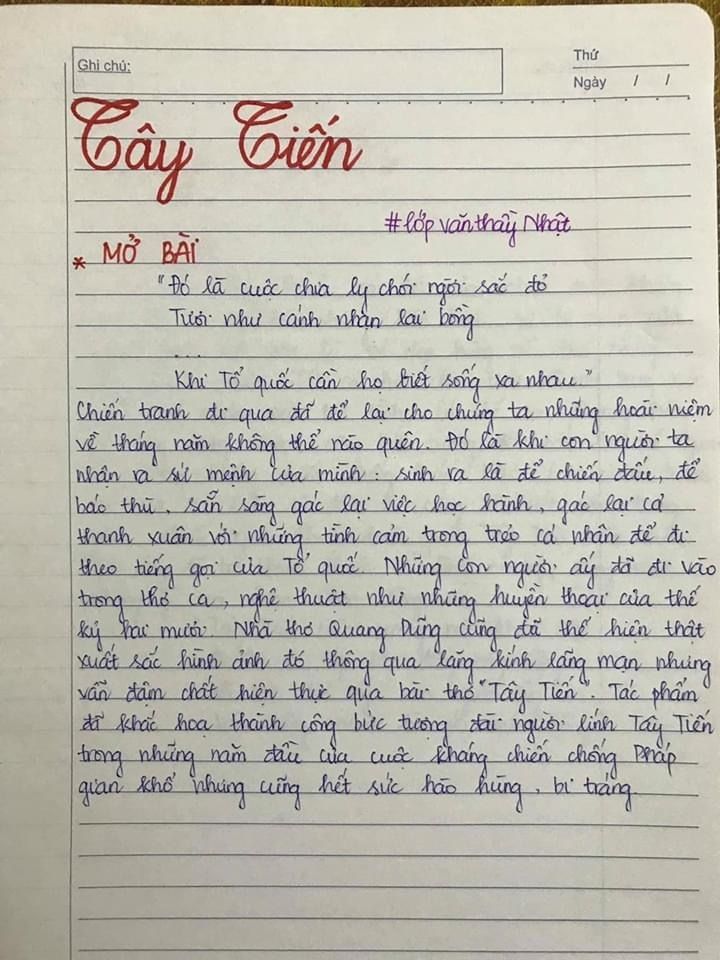 Ghi chú:
Thứ
Ngày / /
Tây Tiến
#lớpvănthầyNhật
* MỞ BÀI
"Đó là cuộc chia ly chói ngời sắc đỏ
Tươi như cánh nhạn lai hồng
...
Khi Tổ quốc cần họ biết sống xa nhau."
Chiến tranh đi qua đã để lại cho chúng ta những hoài niệm
về tháng năm không thể nào quên. Đó là khi con người ta
nhận ra sứ mệnh của mình: sinh ra là để chiến đấu, để
báo thù, sẵn sàng gác lại việc học hành, gác lại cả
thanh xuân với những tình cảm trong trẻo cá nhân để đi
theo tiếng gọi của Tổ quốc. Những con người ấy đã đi vào
trong thơ ca, nghệ thuật như những huyền thoại của thế
kỷ hai mươi. Nhà thơ Quang Dũng cũng đã thể hiện thật
xuất sắc hình ảnh đó thông qua lăng kính lãng mạn nhưng
vẫn đậm chất hiện thực qua bài thơ "Tây Tiến". Tác phẩm
đã khắc hoạ thành công bức tượng đài người lính Tây Tiến
trong những năm đầu của cuộc kháng chiến chống Pháp
gian khổ nhưng cũng hết sức hào hùng, bi tráng.